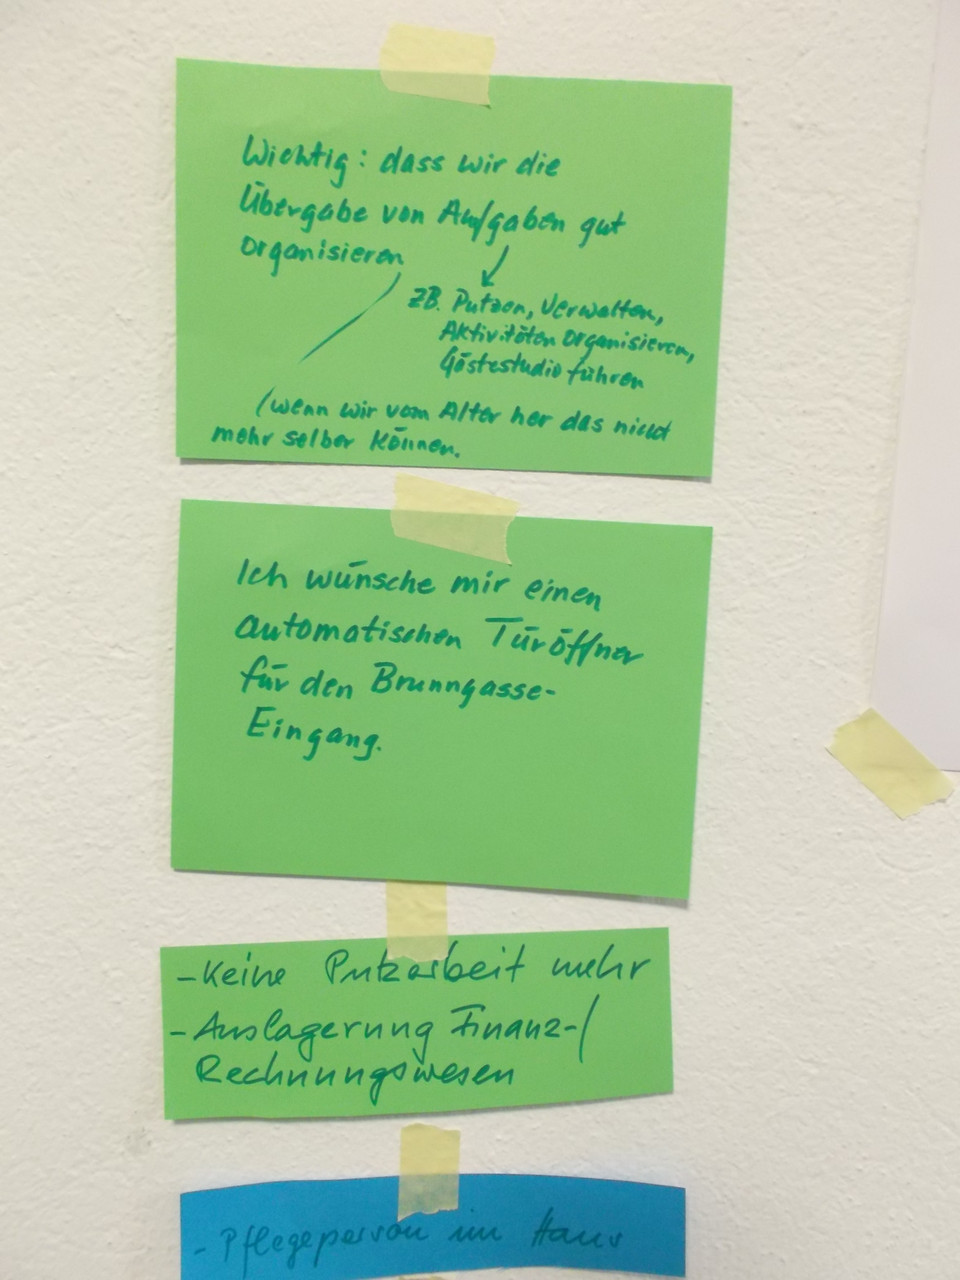 Wichtig: dass wir die
Übergabe von Aufgaben gut
organisieren
zB. Putzen, Verwalten,
Aktivitäten organisieren,
Gästestudio führen
(wenn wir vom Alter her das nicht
mehr selber können.
Ich wünsche mir einen
automatischen Türöffner
für den Brunngasse-
Eingang.
- Keine Putzarbeit mehr
- Auslagerung Finanz-/
Rechnungswesen
- Pflegeperson im Haus